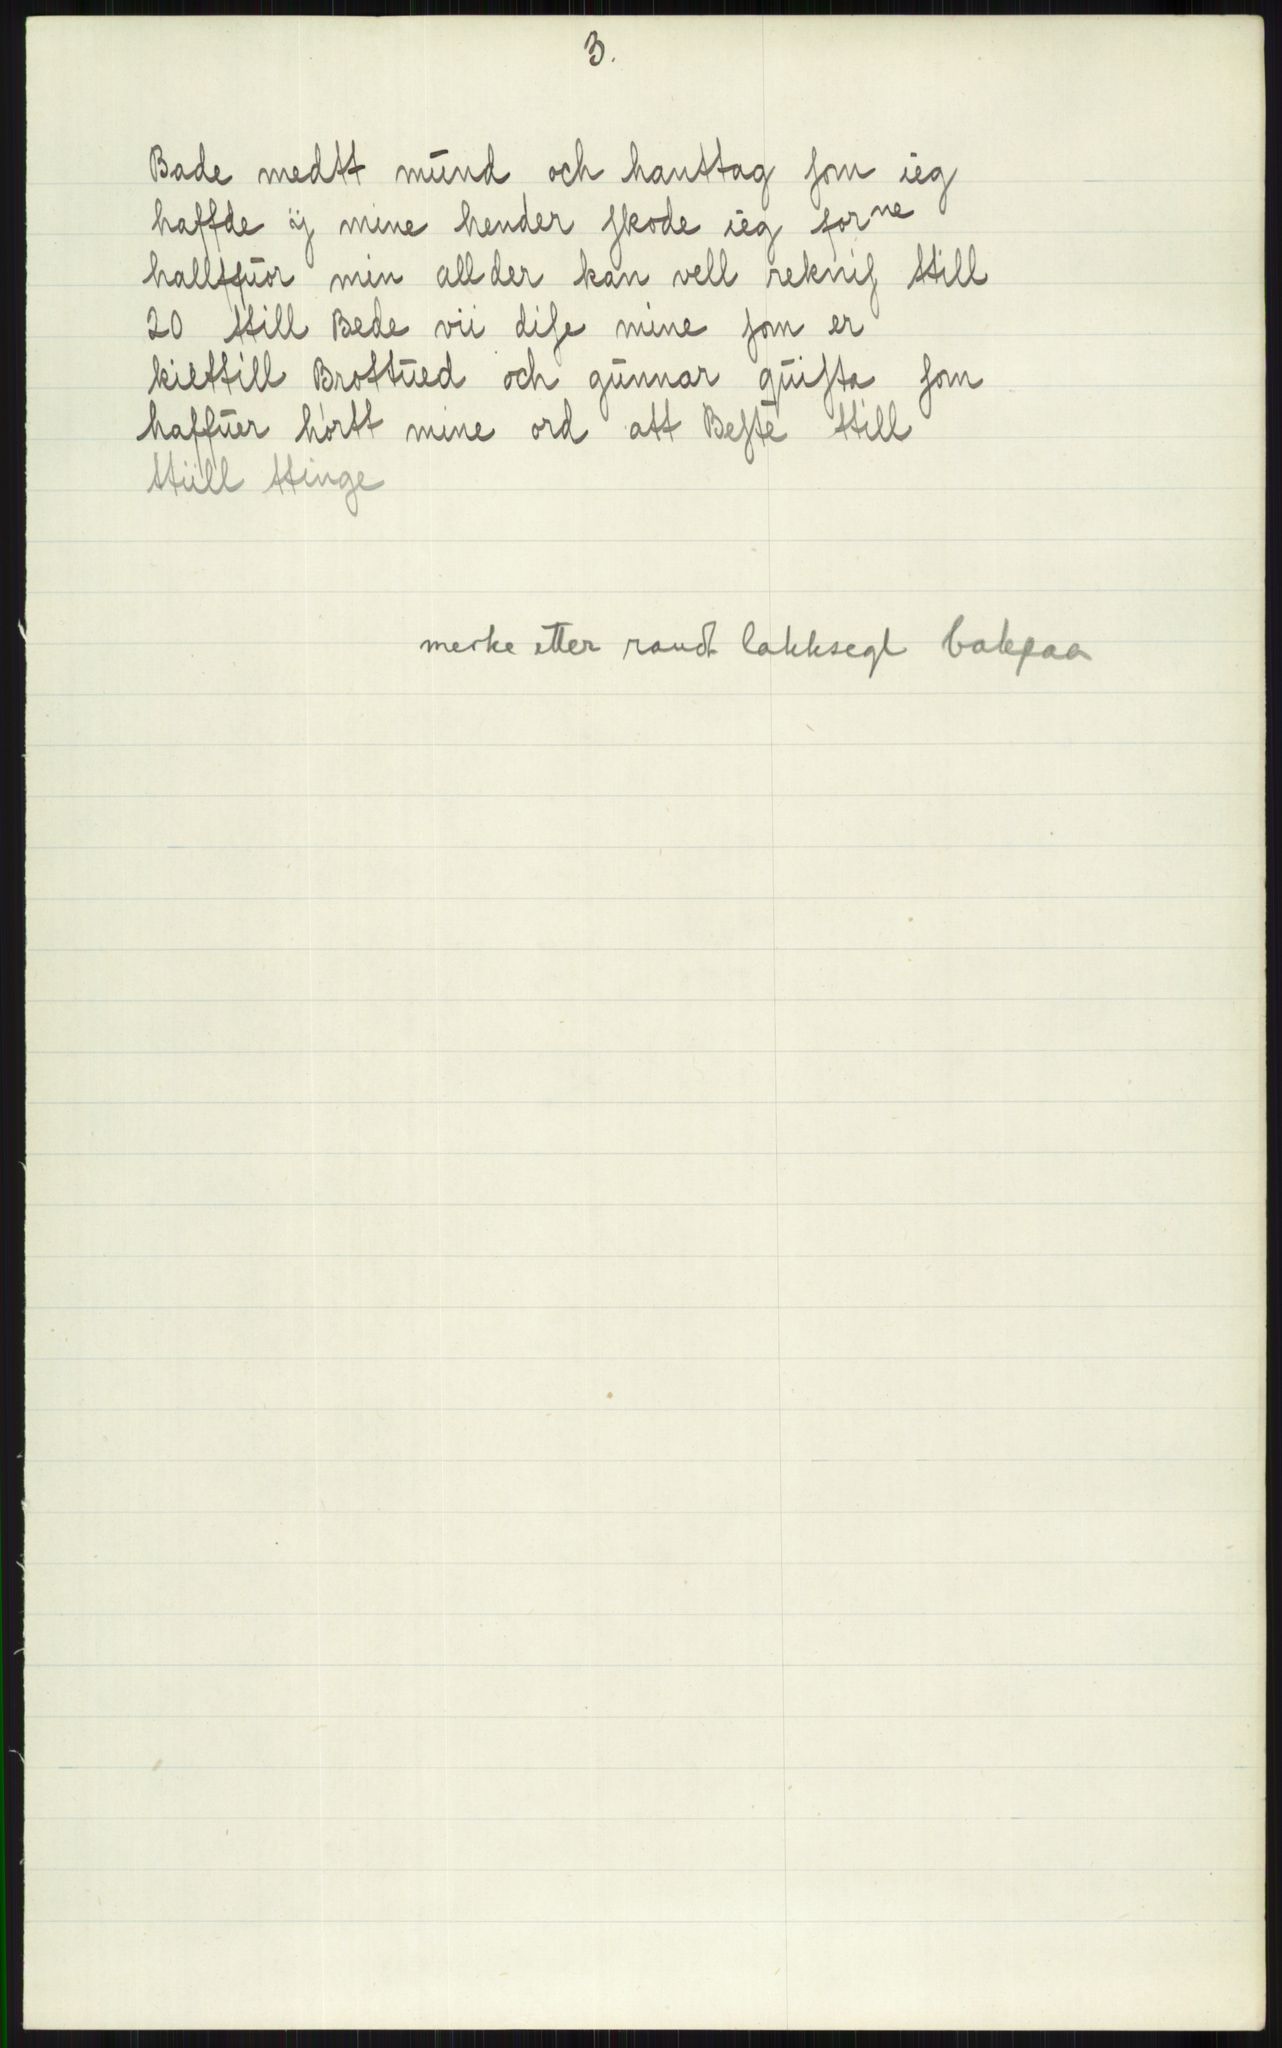 3.
Bade medtt mŭnd och hanttag som ieg
haffde ÿ mine hender skode ieg forne
hallffŭor min allder kan vell reknis ttill
20 ttill Bede vii dise mine som er
kiettill Brottŭed och gŭnnar qŭista som
haffŭer hórtt mine ord att Beste ttill
ttiill ttinge
merke etter raudt lakksegl bakpaa